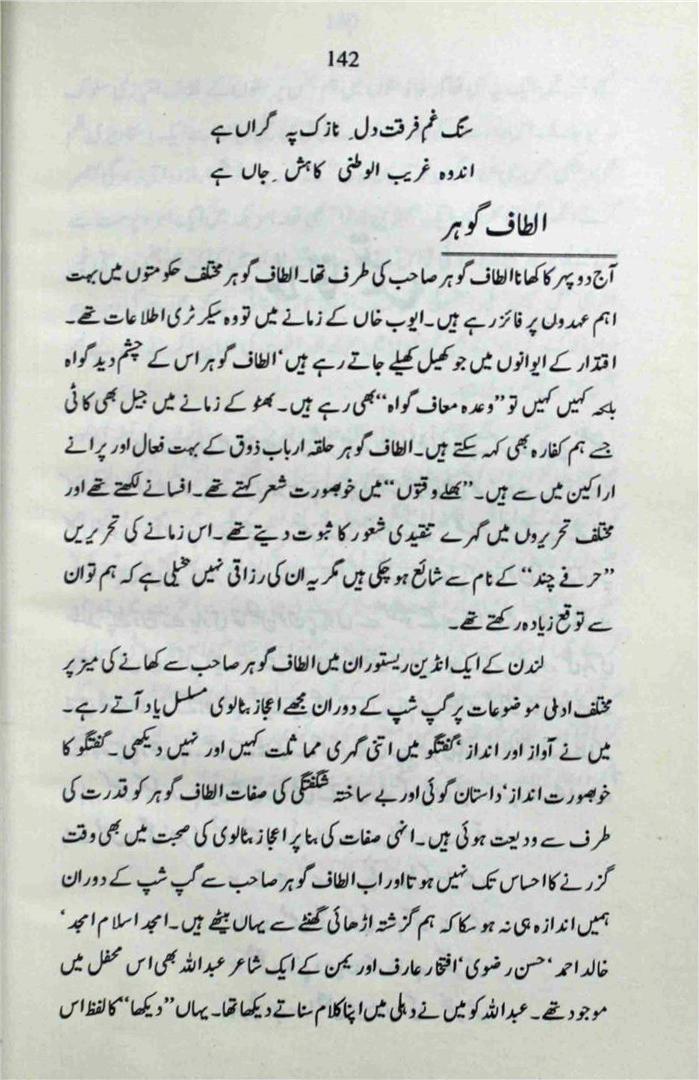 142
سنگ غم فرقت دل ِ نازک پہ گراں ہے
اندوہ غریب الوطنی کاہش ِ جاں ہے
الطاف گوہر
آج دوپہر کا کھانا الطاف گوہر صاحب کی طرف تھا۔ الطاف گوہر مختلف حکومتوں میں بہت
اہم عہدوں پر فائز رہے ہیں۔ ایوب خاں کے زمانے میں تو وہ سیکرٹری اطلاعات تھے۔
اقتدار کے ایوانوں میں جو کھیل کھیلے جاتے رہے ہیں‘ الطاف گوہر اس کے چشم دید گواہ
بلکہ کہیں کہیں تو ”وعدہ معاف گواہ“ بھی رہے ہیں۔ بھٹو کے زمانے میں جیل بھی کاٹی
جسے ہم کفارہ بھی کہہ سکتے ہیں۔ الطاف گوہر حلقہ ارباب ذوق کے بہت فعال اور پرانے
اراکین میں سے ہیں۔ ”بھلے وقتوں“ میں خوبصورت شعر کہتے تھے۔ افسانے لکھتے تھے اور
مختلف تحریروں میں گہرے تنقیدی شعور کا ثبوت دیتے تھے۔ اس زمانے کی تحریریں
”حرفے چند“ کے نام سے شائع ہو چکی ہیں مگر یہ ان کی رزاقی نہیں بخیلی ہے کہ ہم تو ان
سے توقع زیادہ رکھتے تھے۔
لندن کے ایک انڈین ریستوران میں الطاف گوہر صاحب سے کھانے کی میز پر
مختلف ادبی موضوعات پر گپ شپ کے دوران مجھے اعجاز بٹالوی مسلسل یاد آتے رہے۔
میں نے آواز اور انداز ِ گفتگو میں اتنی گہری مماثلت کہیں اور نہیں دیکھی۔ گفتگو کا
خوبصورت انداز‘ داستان گوئی اور بے ساختہ شگفتگی کی صفات الطاف گوہر کو قدرت کی
طرف سے ودیعت ہوئی ہیں۔ انہی صفات کی بنا پر اعجاز بٹالوی کی صحبت میں بھی وقت
گزرنے کا احساس تک نہیں ہوتا اور اب الطاف گوہر صاحب سے گپ شپ کے دوران
ہمیں اندازہ ہی نہ ہو سکا کہ ہم گزشتہ اڑھائی گھنٹے سے یہاں بیٹھے ہیں۔ امجد اسلام امجد‘
خالد احمد‘ حسن رضوی‘ افتخار عارف اور یمن کے ایک شاعر عبداللہ بھی اس محفل میں
موجود تھے۔ عبداللہ کو میں نے دہلی میں اپنا کلام سناتے دیکھا تھا۔ یہاں ”دیکھا“ کا لفظ اس